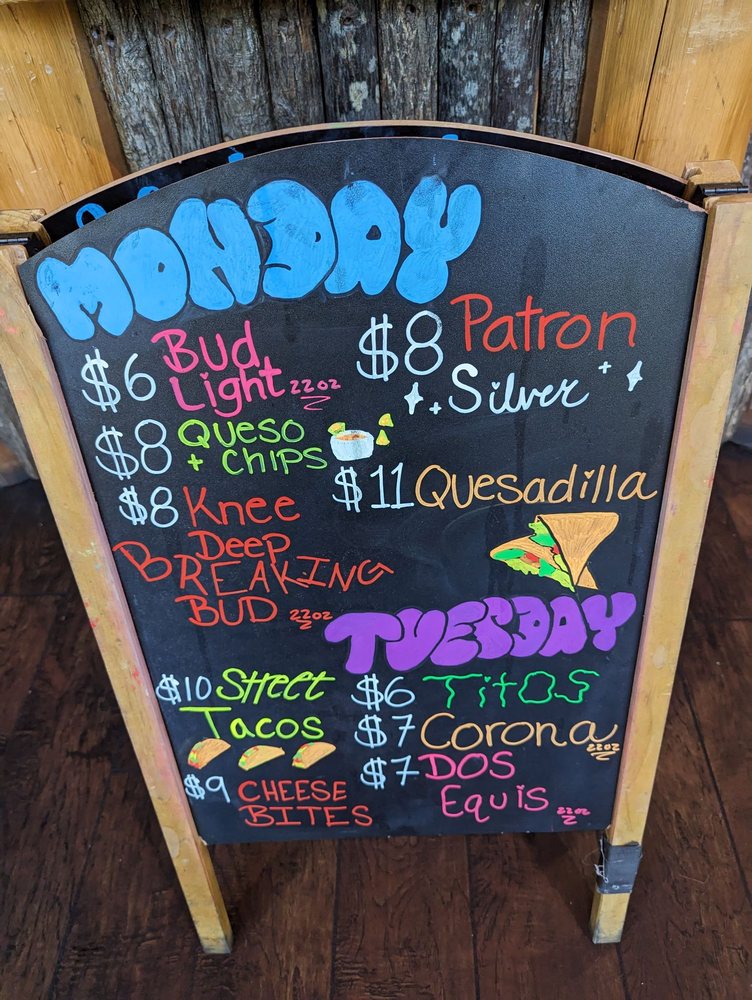 MONDAY
$6 Bud
Light 22oz
$8 Queso
+ Chips
$8 Knee
Deep
BREAKING
BUD 22oz
$8 Patron
Silver
$11 Quesadilla
TUESDAY
$10 Street
Tacos
$9 CHEESE
BITES
$6 TitOS
$7 Corona 22oz
$7 DOS
Equis 22oz